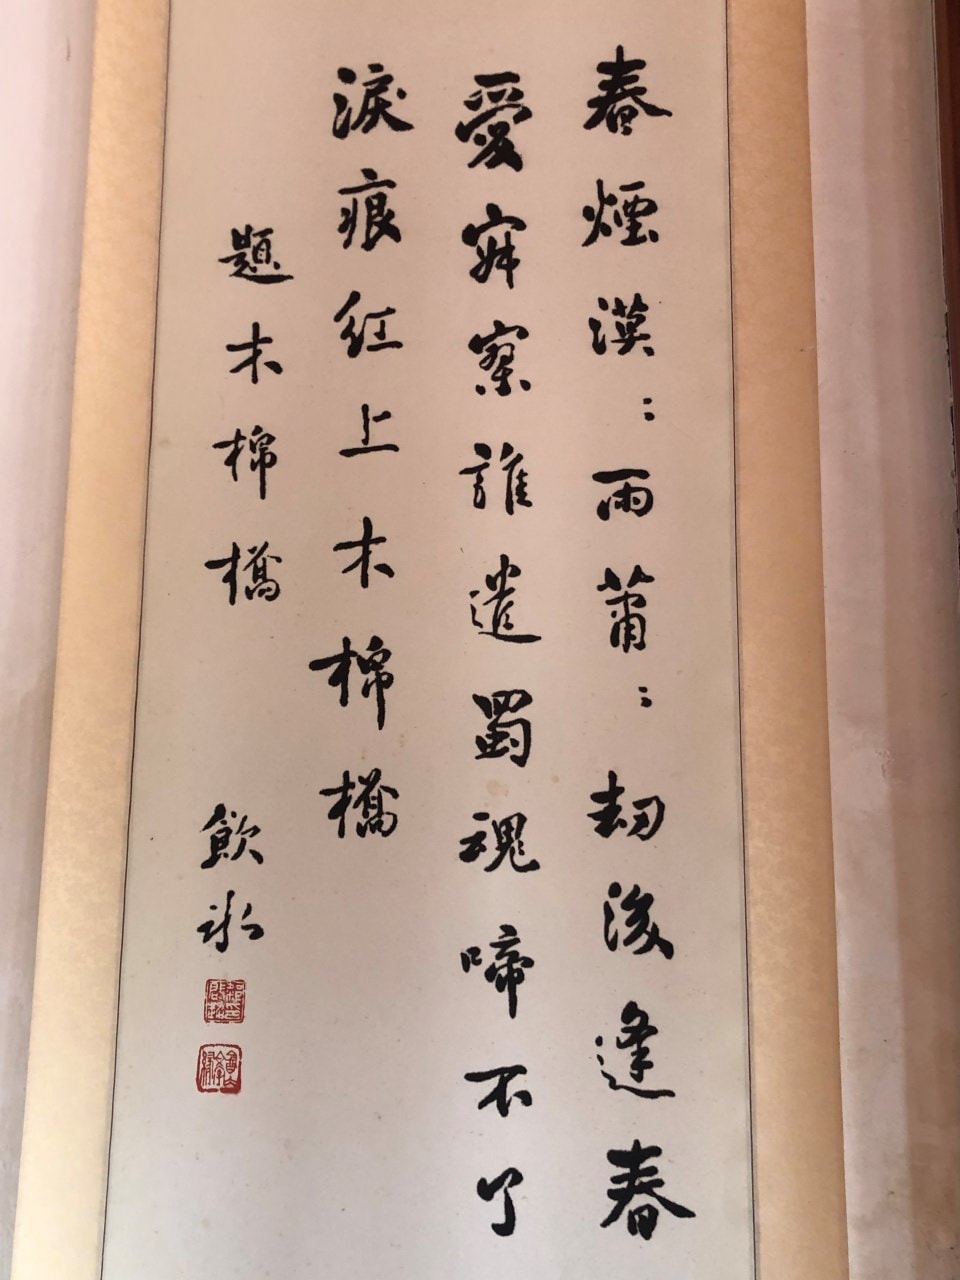 春煙漠〻雨蕭〻劫後逢春
愛寂寥誰遣蜀魂啼不了
淚痕紅上木棉橋
題木棉橋
飲冰